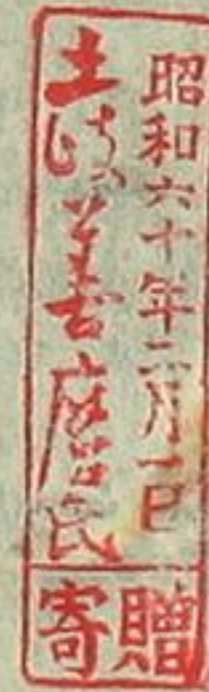 昭和六十年六月一日
土岐善麿氏
寄贈